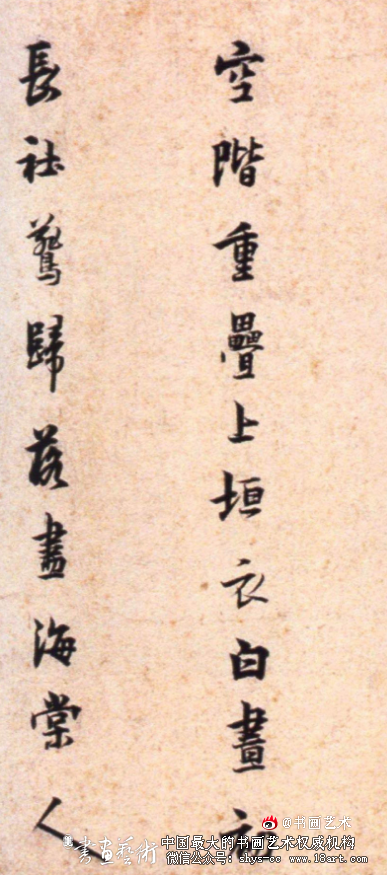 空階重疊上垣衣白晝
長社鷰歸落盡海棠人
@书画艺术
書畫藝術
中国最大的书画艺术权威机构
微信公众号：shys-cc www.18art.com